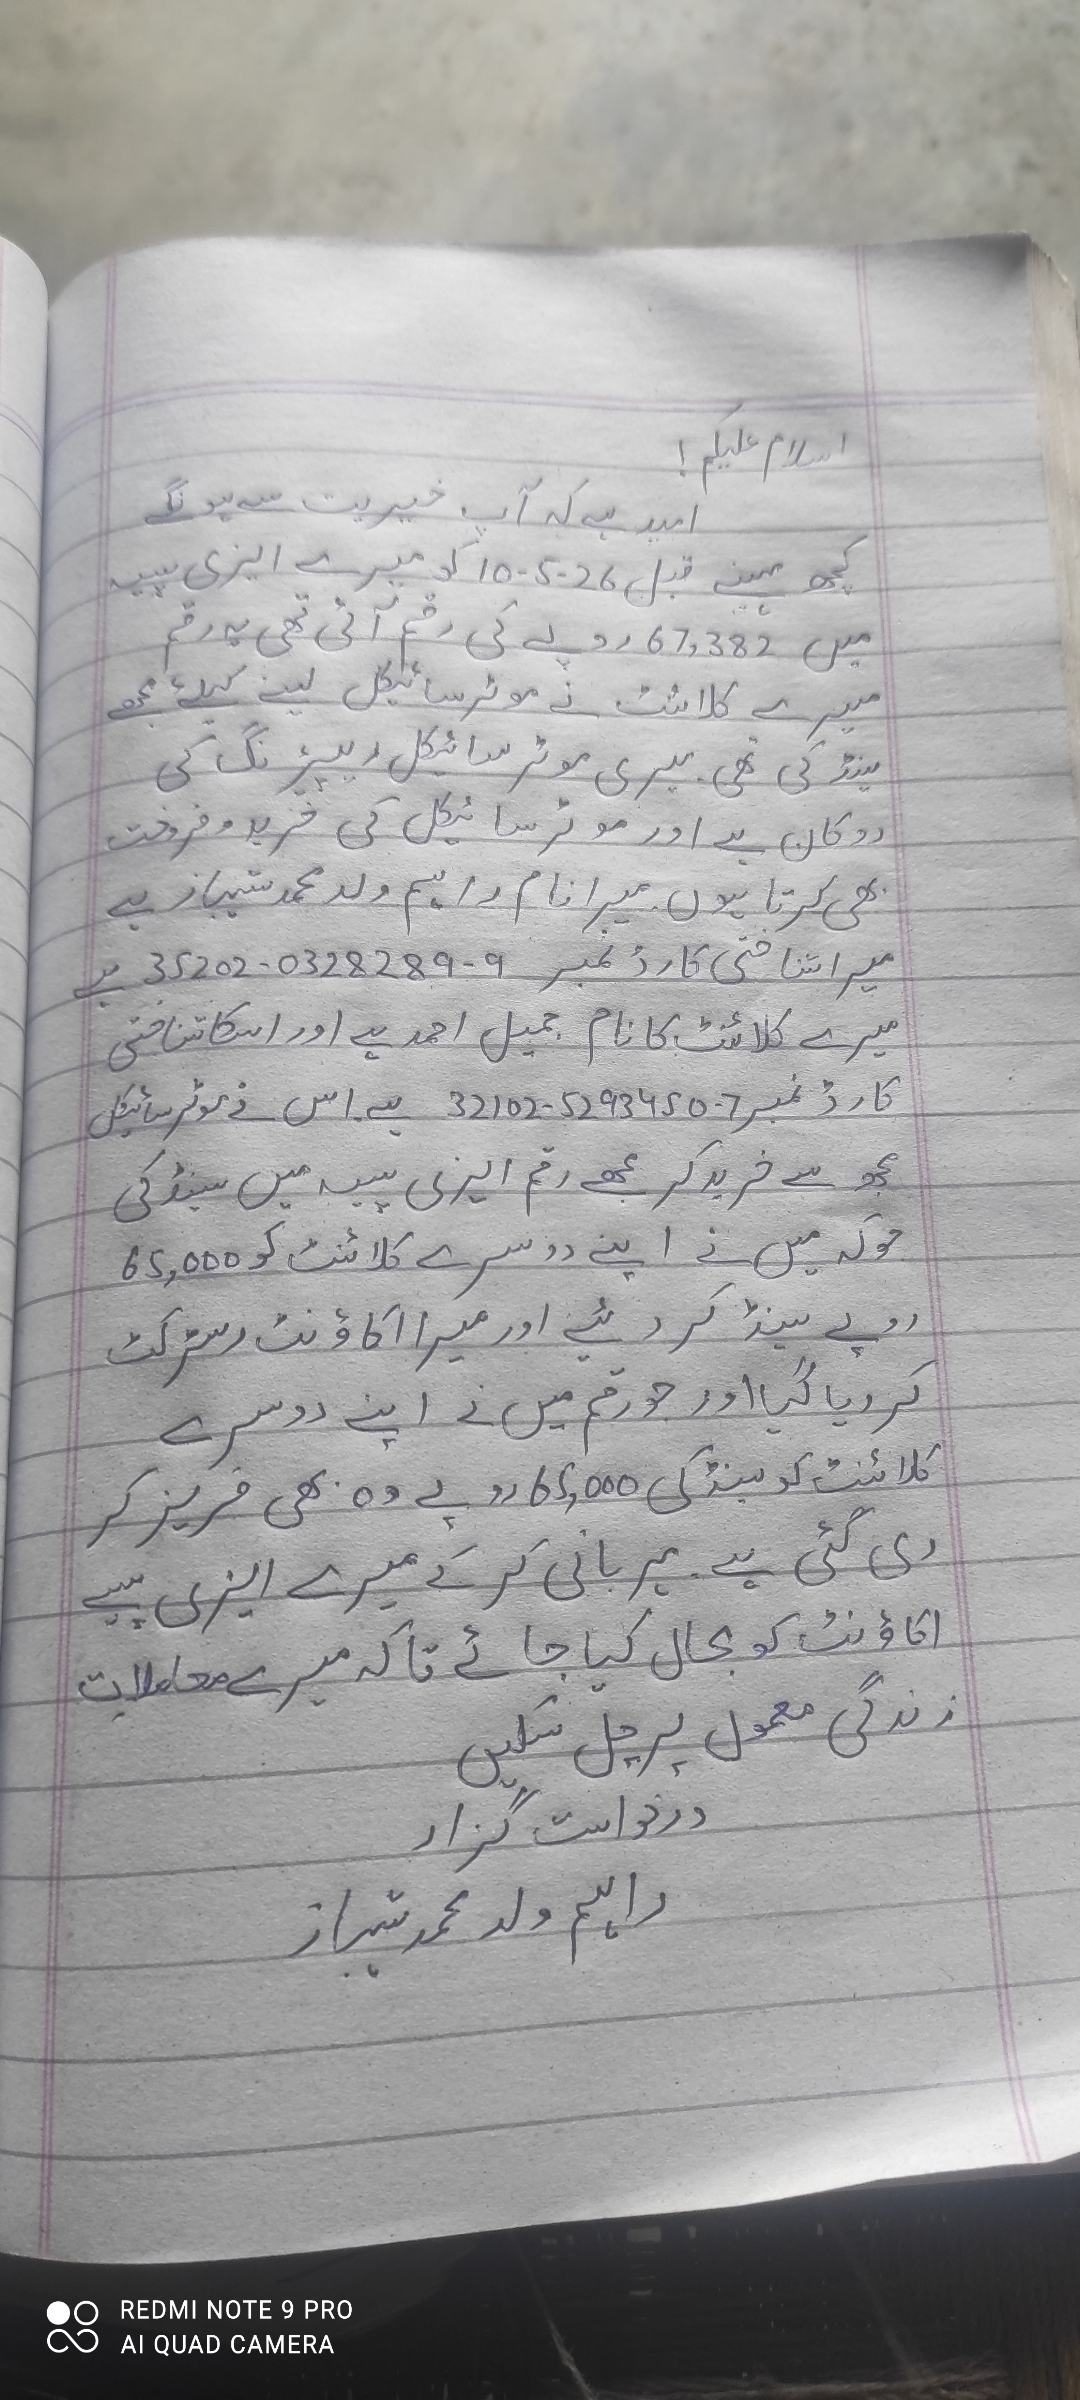 اسلام علیکم !
امید ہے کہ آپ خیریت سے ہونگے
کچھ مہینے قبل 26-5-10 کو میرے ایزی پیسہ
میں 67,382 روپے کی رقم آئی تھی یہ رقم
میرے کلائنٹ نے موٹر سائیکل لینے کیلئے مجھے
سینڈ کی تھی۔ میری موٹر سائیکل ریپیرنگ کی
دوکان ہے اور موٹر سائیکل کی خرید و فروخت
بھی کرتا ہوں۔ میرا نام راہیم ولد محمد شہباز ہے
میرا شناختی کارڈ نمبر 35202-0328289-9 ہے
میرے کلائنٹ کا نام جمیل احمد ہے اور اسکا شناختی
کارڈ نمبر 32102-5293450-7 ہے۔ اس نے موٹر سائیکل
مجھ سے خرید کر مجھے رقم ایزی پیسہ میں سینڈ کی
جوکہ میں نے اپنے دوسرے کلائنٹ کو 65,000
روپے سینڈ کر دیئے اور میرا اکاؤنٹ رسٹرکٹ
کر دیا گیا اور جو رقم میں نے اپنے دوسرے
کلائنٹ کو سینڈ کی 65,000 روپے وہ بھی فریز کر
دی گئی ہے۔ مہربانی کر کے میرے ایزی پیسے
اکاؤنٹ کو بحال کیا جائے تاکہ میرے معاملات
زندگی معمول پر چل سکیں
درخواست گزار
راہیم ولد محمد شہباز
REDMI NOTE 9 PRO
AI QUAD CAMERA